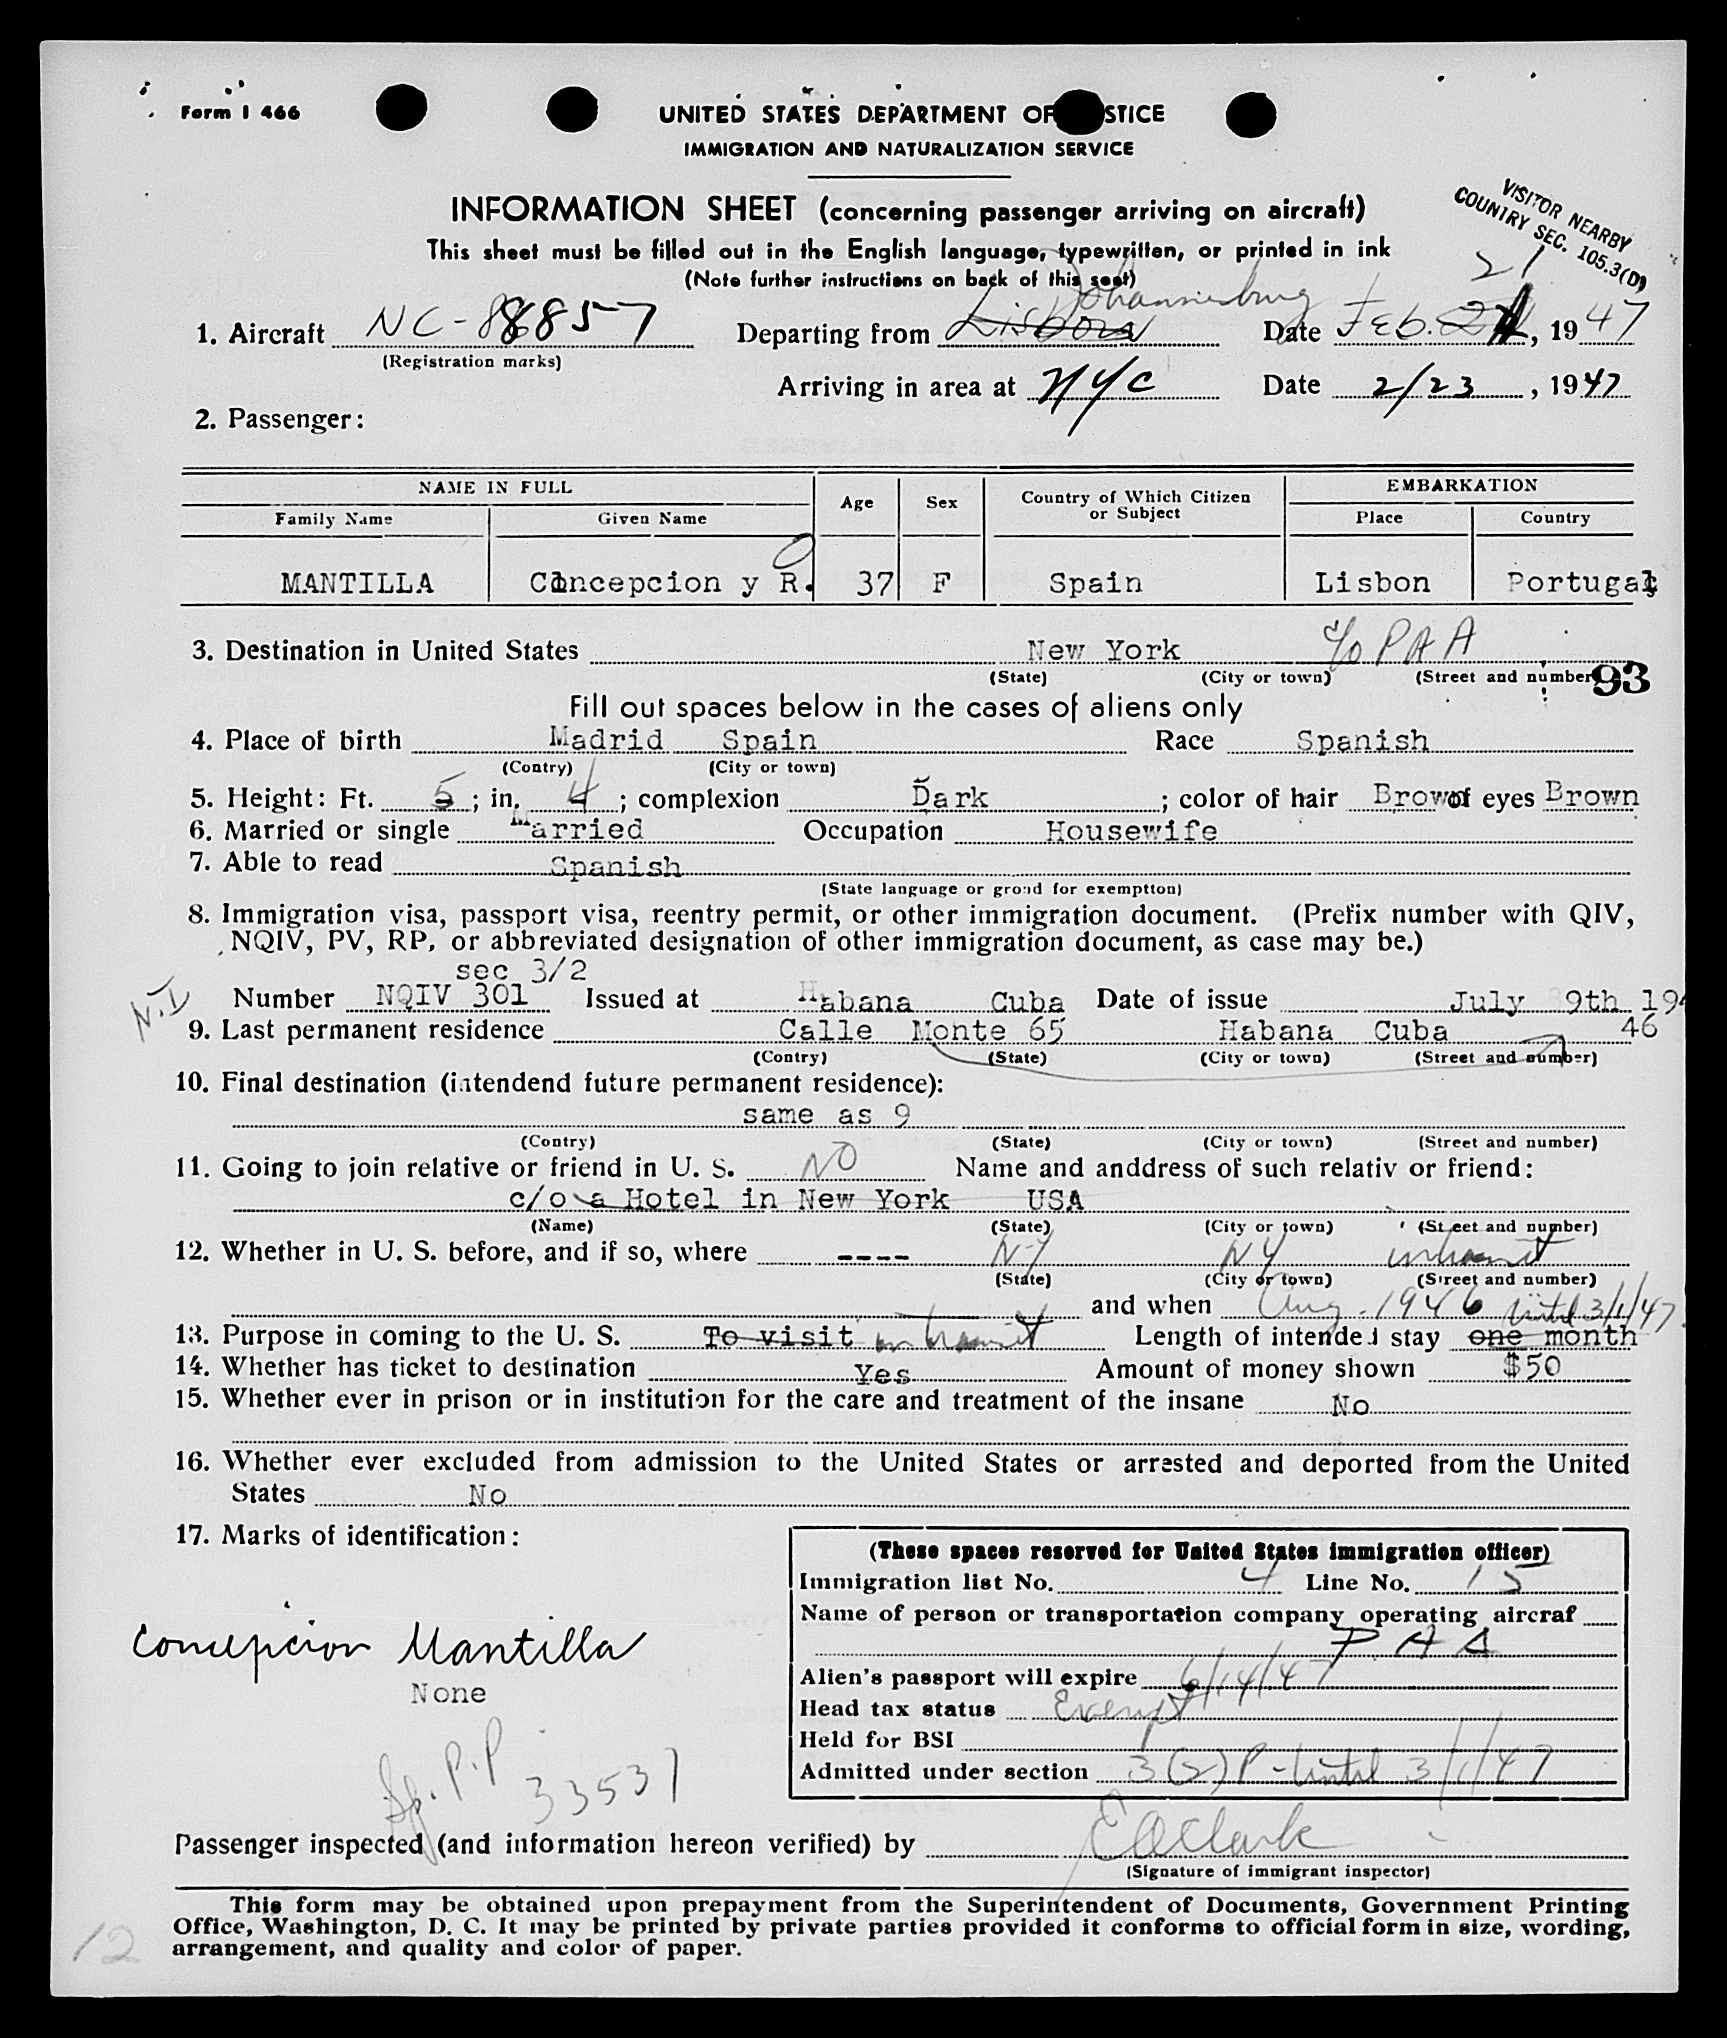 Form I 466
UNITED STATES DEPARTMENT OF STICE
IMMIGRATION AND NATURALIZATION SERVICE
INFORMATION SHEET (concerning passenger arriving on aircraft)
This sheet must be filled out in the English language, typewritten, or printed in ink
(Note further instructions on back of this seet)
VISITOR NEARBY
COUNTRY SEC. 105.3(D)
Johannesburg 21
1. Aircraft NC-88857 Departing from Lisbon Date Feb. , 1947
(Registration marks)
Arriving in area at NYC Date 2/23, 1947
2. Passenger:
NAME IN FULL Age Sex Country of Which Citizen or Subject EMBARKATION
Family Name Given Name Place Country
O
MANTILLA Concepcion y R. 37 F Spain Lisbon Portugal
3. Destination in United States New York c/o PAA
(State) (City or town) (Street and number)
93
Fill out spaces below in the cases of aliens only
4. Place of birth Madrid Spain Race Spanish
(Contry) (City or town)
5. Height: Ft. 5 ; in. 4 ; complexion Dark ; color of hair Brown of eyes Brown
6. Married or single Married Occupation Housewife
7. Able to read Spanish
(State language or grond for exemptton)
8. Immigration visa, passport visa, reentry permit, or other immigration document. (Prefix number with QIV,
NQIV, PV, RP, or abbreviated designation of other immigration document, as case may be.)
sec 3/2
N.I Number NQIV 301 Issued at Habana Cuba Date of issue July 9th 194
46
9. Last permanent residence Calle Monte 65 Habana Cuba
(Contry) (State) (City or town) (Street and number)
10. Final destination (intendend future permanent residence):
same as 9
(Contry) (State) (City or town) (Street and number)
11. Going to join relative or friend in U. S. NO Name and anddress of such relativ or friend:
c/o a Hotel in New York USA
(Name) (State) (City or town) (Street and number)
12. Whether in U. S. before, and if so, where ---- NY NY in transit
(State) (City or town) (Street and number)
and when Aug. 1946 Until 3/1/47
13. Purpose in coming to the U. S. To visit in transit Length of intended stay one month
14. Whether has ticket to destination Yes Amount of money shown $50
15. Whether ever in prison or in institution for the care and treatment of the insane No
16. Whether ever excluded from admission to the United States or arrested and deported from the United
States No
17. Marks of identification:
Concepcion Mantilla
None
Sp. P.P 33537
(These spaces reserved for United States immigration officer)
Immigration list No. 4 Line No. 15
Name of person or transportation company operating aircraf
P A A
Alien's passport will expire 6/14/47
Head tax status Exempt
Held for BSI
Admitted under section 3(2) P - Until 3/1/47
Passenger inspected (and information hereon verified) by E A Clark
(Signature of immigrant inspector)
This form may be obtained upon prepayment from the Superintendent of Documents, Government Printing
Office, Washington, D. C. It may be printed by private parties provided it conforms to official form in size, wording,
arrangement, and quality and color of paper.
12